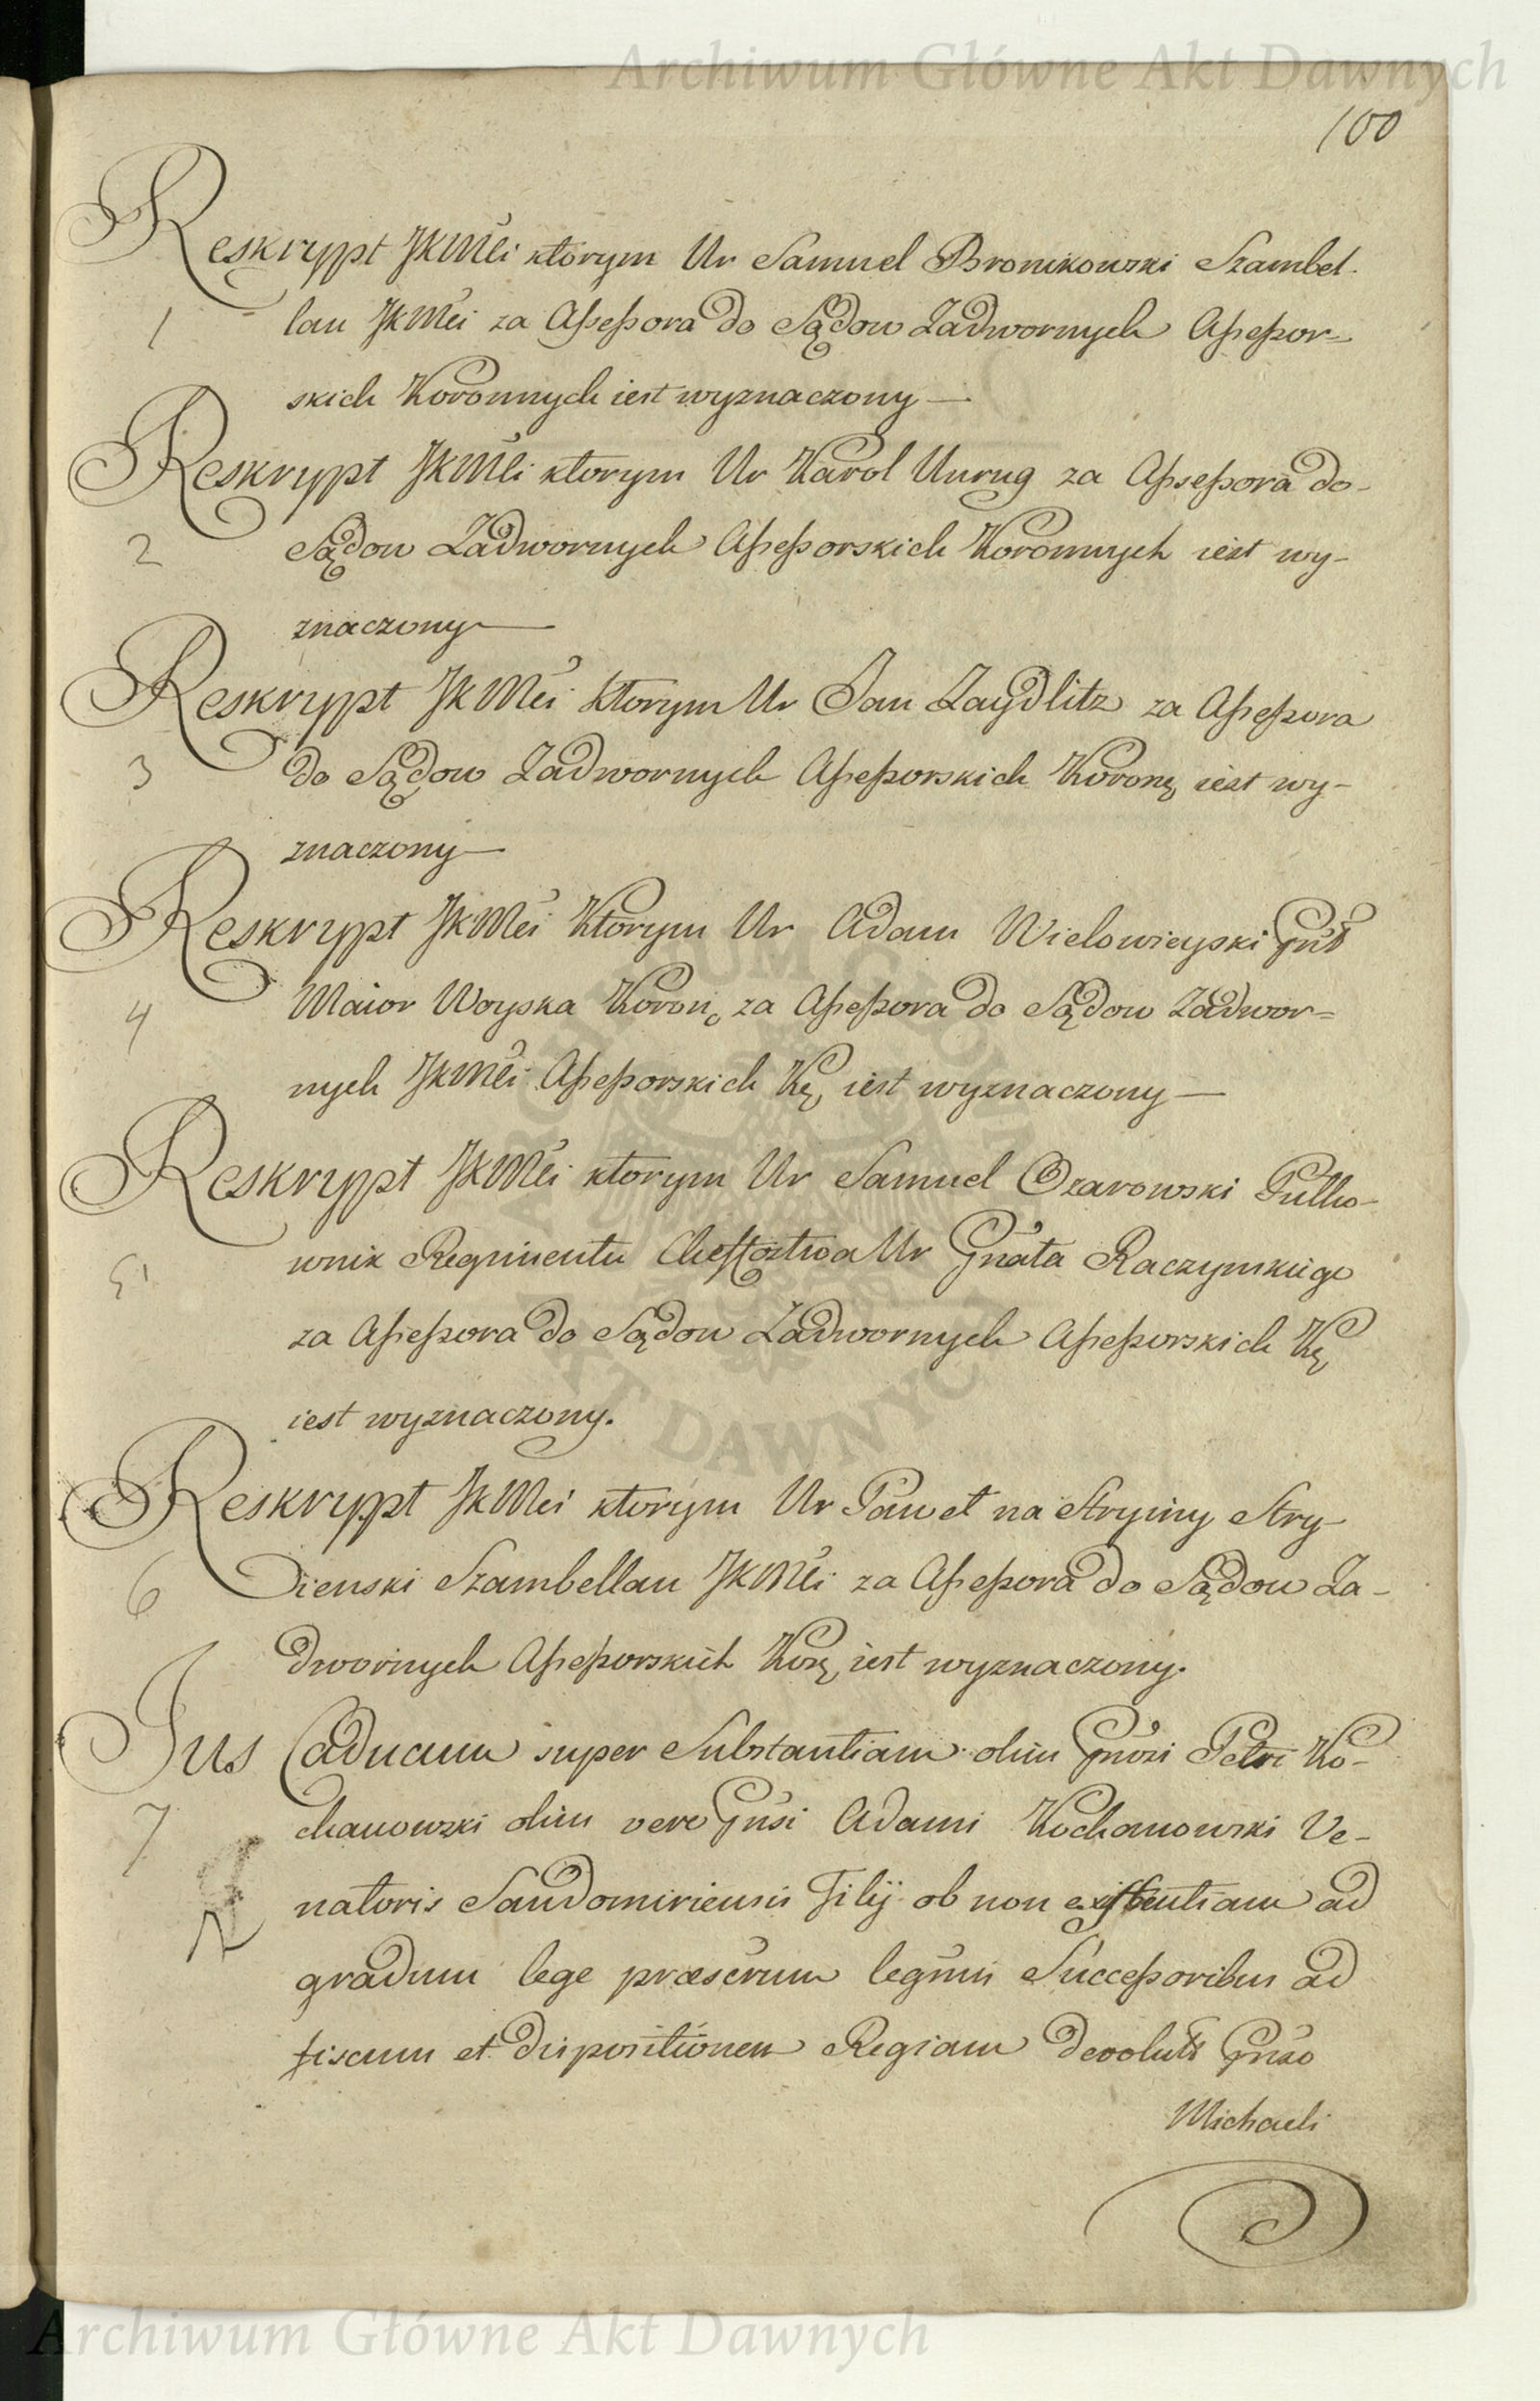 Archiwum Główne Akt Dawnych
100
Reskrypt JKMći ktorym Ur Samuel Bronikowski Szambel-
1 lan JKMći za Assessora do Sądow Zadwornych Assessor=
skich Koronnych iest wyznaczony —
Reskrypt JKMći ktorym Ur Karol Unrug za Assessora do-
2 Sądow Zadwornych Assessorskich Koronnych iest wy-
znaczony —
Reskrypt JKMći ktorym Ur Jan Zaydlitz za Assessora
3 do Sądow Zadwornych Assessorskich Koron, iest wy-
znaczony —
Reskrypt JKMći ktorym Ur Adam Wielowieyski Gnł
4 Maior Woyska Koron, za Assessora do Sądow Zadwor=
nych JKMći Assessorskich K, iest wyznaczony —
Reskrypt JKMći ktorym Ur Samuel Ozarowski Pułko-
5 wnik Regimentu Ur Gnała Raczynskiego
za Assessora do Sądow Zadwornych Assessorskich K,
iest wyznaczony.
Reskrypt JKMći ktorym Ur Paweł na Stryiny Stry-
6 dienski Szambellan JKMći za Assessora do Sądow Za-
dwornych Assessorskich Kor, iest wyznaczony.
Jus Caducum super Substantiam olim Gnosi Petri Ko-
7 chanowski olim vero Gnsi Adami Kochanowski Ve-
natoris Sandomiriensis Filij ob non existentiam ad
gradum lege præscrum legmis Successoribus ad
fiscum et dispositionem Regiam devolut Gnso
Michaeli
ARCHIWUM GŁÓWNE AKT DAWNYCH
Archiwum Główne Akt Dawnych